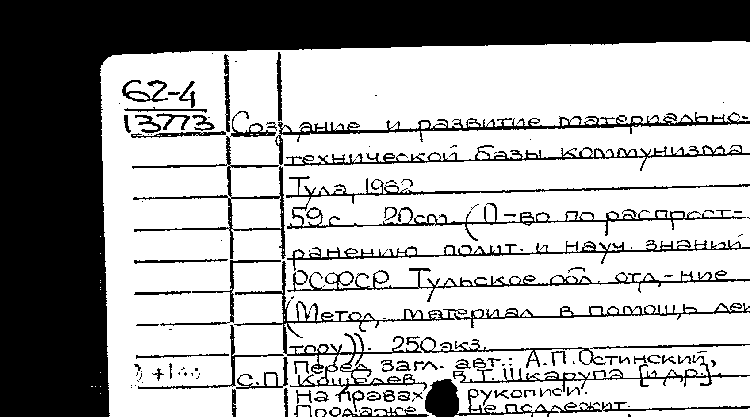 62-4
13773
Создание и развитие материально-
технической базы коммунизма
Тула, 1962
59 с. 20 см. (О-во по распрост-
ранению полит. и науч. знаний
РСФСР Тульское обл. отд-ние
(Метод. материал в помощь лек
тору)). 250 экз.
Перед загл. авт.: А.П.Остинский,
С.П. Кошелев, В.Т.Шкарупа [и др.].
На правах рукописи.
Продаже не подлежит.